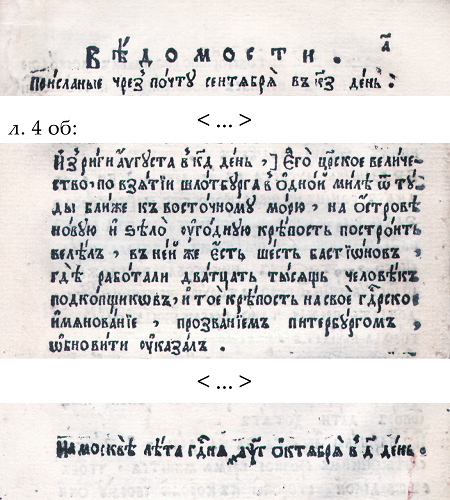 Вѣ́домости . а҃
Присланые чрез̾ по́чту сентѧбрѧ̀ въ к҃з день :
< ... >
л. 4 об:
И҆з̾ ри́ги а҆́vгуста в̾ к҃д день , ] Е҆гѡ̀ цр҃ское вели́че-
ство, по взѧ́тїи шло́тбурга в̾ ѻ҆дно́й ми́лѣ ѿ ту́-
ды бли́же къ восто́чному мо́рю , на ѻ҆́стровѣ
но́вую и҆ ѕѣлѡ̀ ᲂу҆го́дную крѣ́пость постро́ить
велѣ́лъ , въ не́й же є҆́сть ше́сть бастїѡ́новъ ,
гдѣ̀ рабо́тали два́тцать ты́сѧщь человѣ́къ
подко́пщикѡвъ, и҆ тоѐ крѣ́пость на своѐ гд҇рское
и҆мѧнова́нїе , прозва́нїемъ питербу́ргомъ ,
ѡ҆бнови́ти ᲂу҆каза́лъ .
< ... >
На москвѣ̀ лѣ́та гд҇нѧ ҂аѱг ѻ҆ктѧбрѧ̀ в̾ д҃ де́нь .